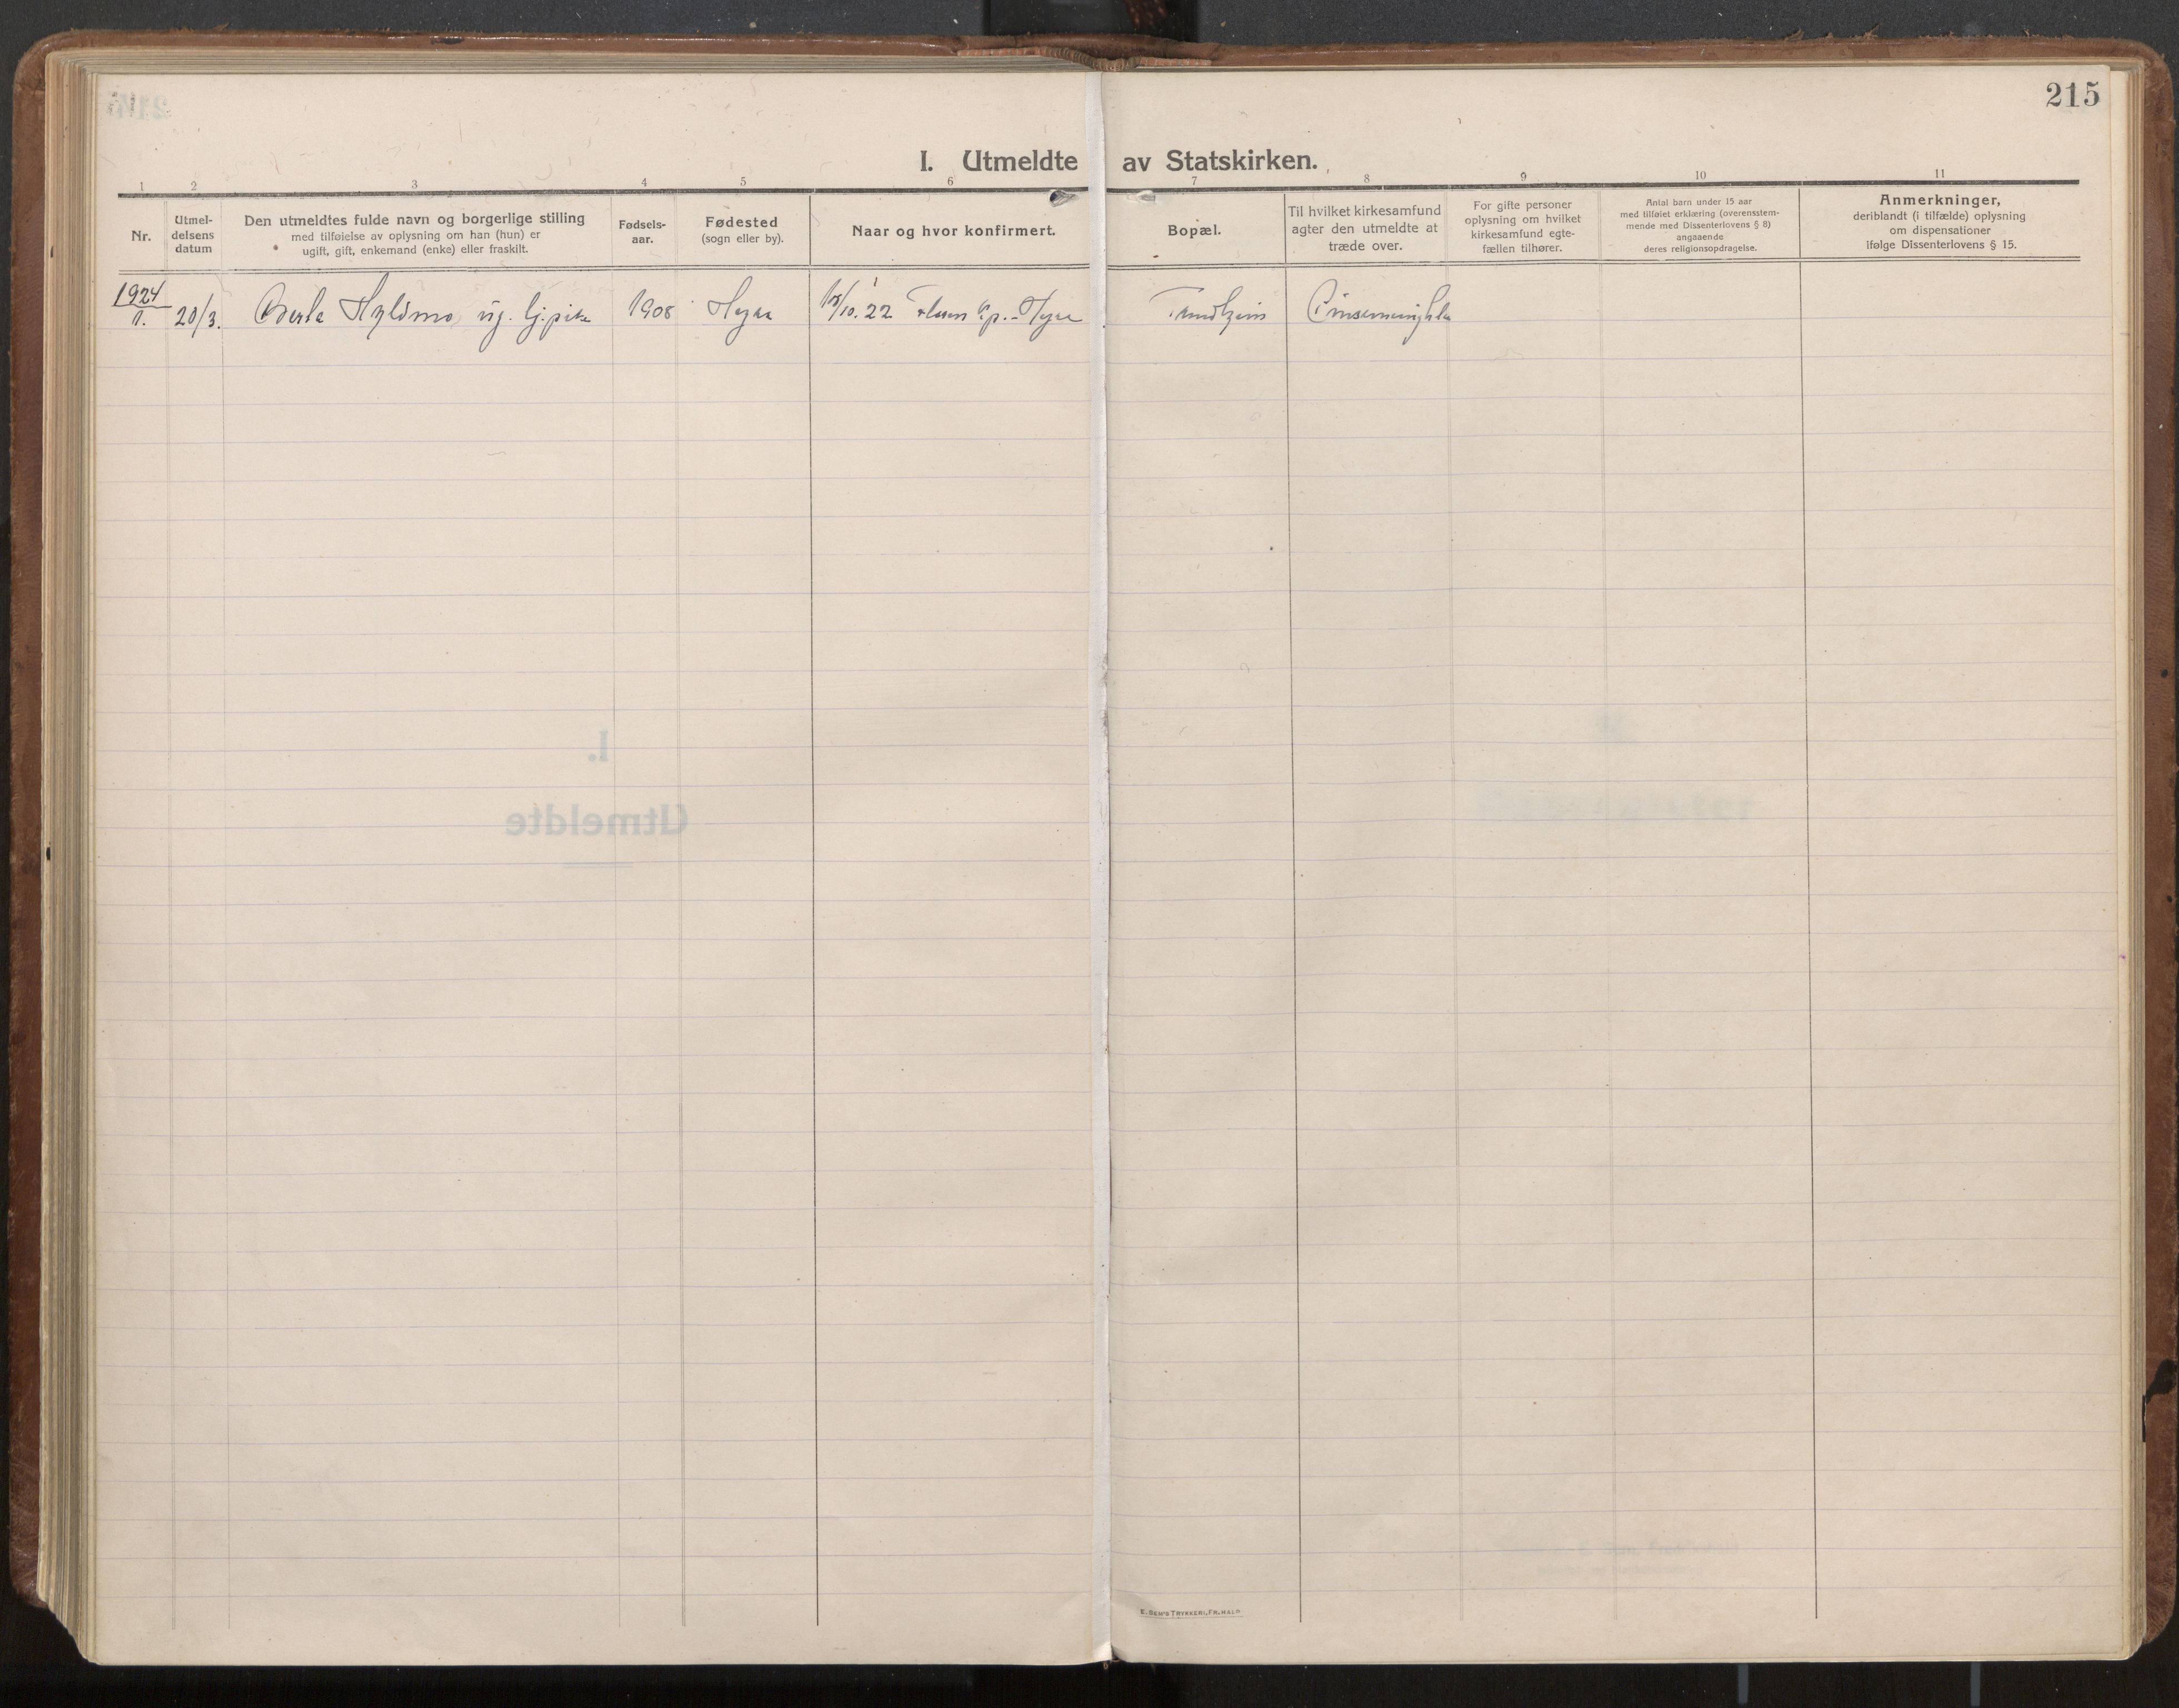 215
I. Utmeldte av Statskirken.
1 2 3 4 5 6 7 8 9 10 11
Nr.
Utmel-
delsens
datum
Den utmeldtes fulde navn og borgerlige stilling
med tilføielse av oplysning om han (hun) er
ugift, gift, enkemand (enke) eller fraskilt.
Fødsels-
aar.
Fødested
(sogn eller by).
Naar og hvor konfirmert.
Bopæl.
Til hvilket kirkesamfund
agter den utmeldte at
træde over.
For gifte personer
oplysning om hvilket
kirkesamfund egte-
fællen tilhører.
Antal barn under 15 aar
med tilføiet erklæring (overensstem-
mende med Dissenterlovens § 8)
angaaende
deres religionsopdragelse.
Anmerkninger,
deriblandt (i tilfælde) oplysning
om dispensationer
ifølge Dissenterlovens § 15.
1924
1. 20/3. Hyldmo, ug. tj.pike 1908 Hegra /10. 22 Hegra Trondhjem
I.
Utmeldte
E. SEM'S TRYKKERI, FR.HALD